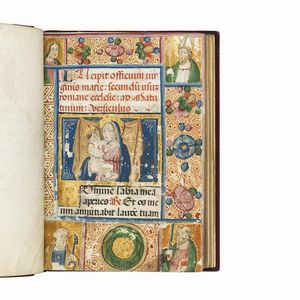 Incipit officium vir
ginis marie: secundū usuȝ
romane ecclesie: ad Matu
tinum: Versiculus
Domine labia mea
aperies Et os me
um annūtiabit laudē tuam